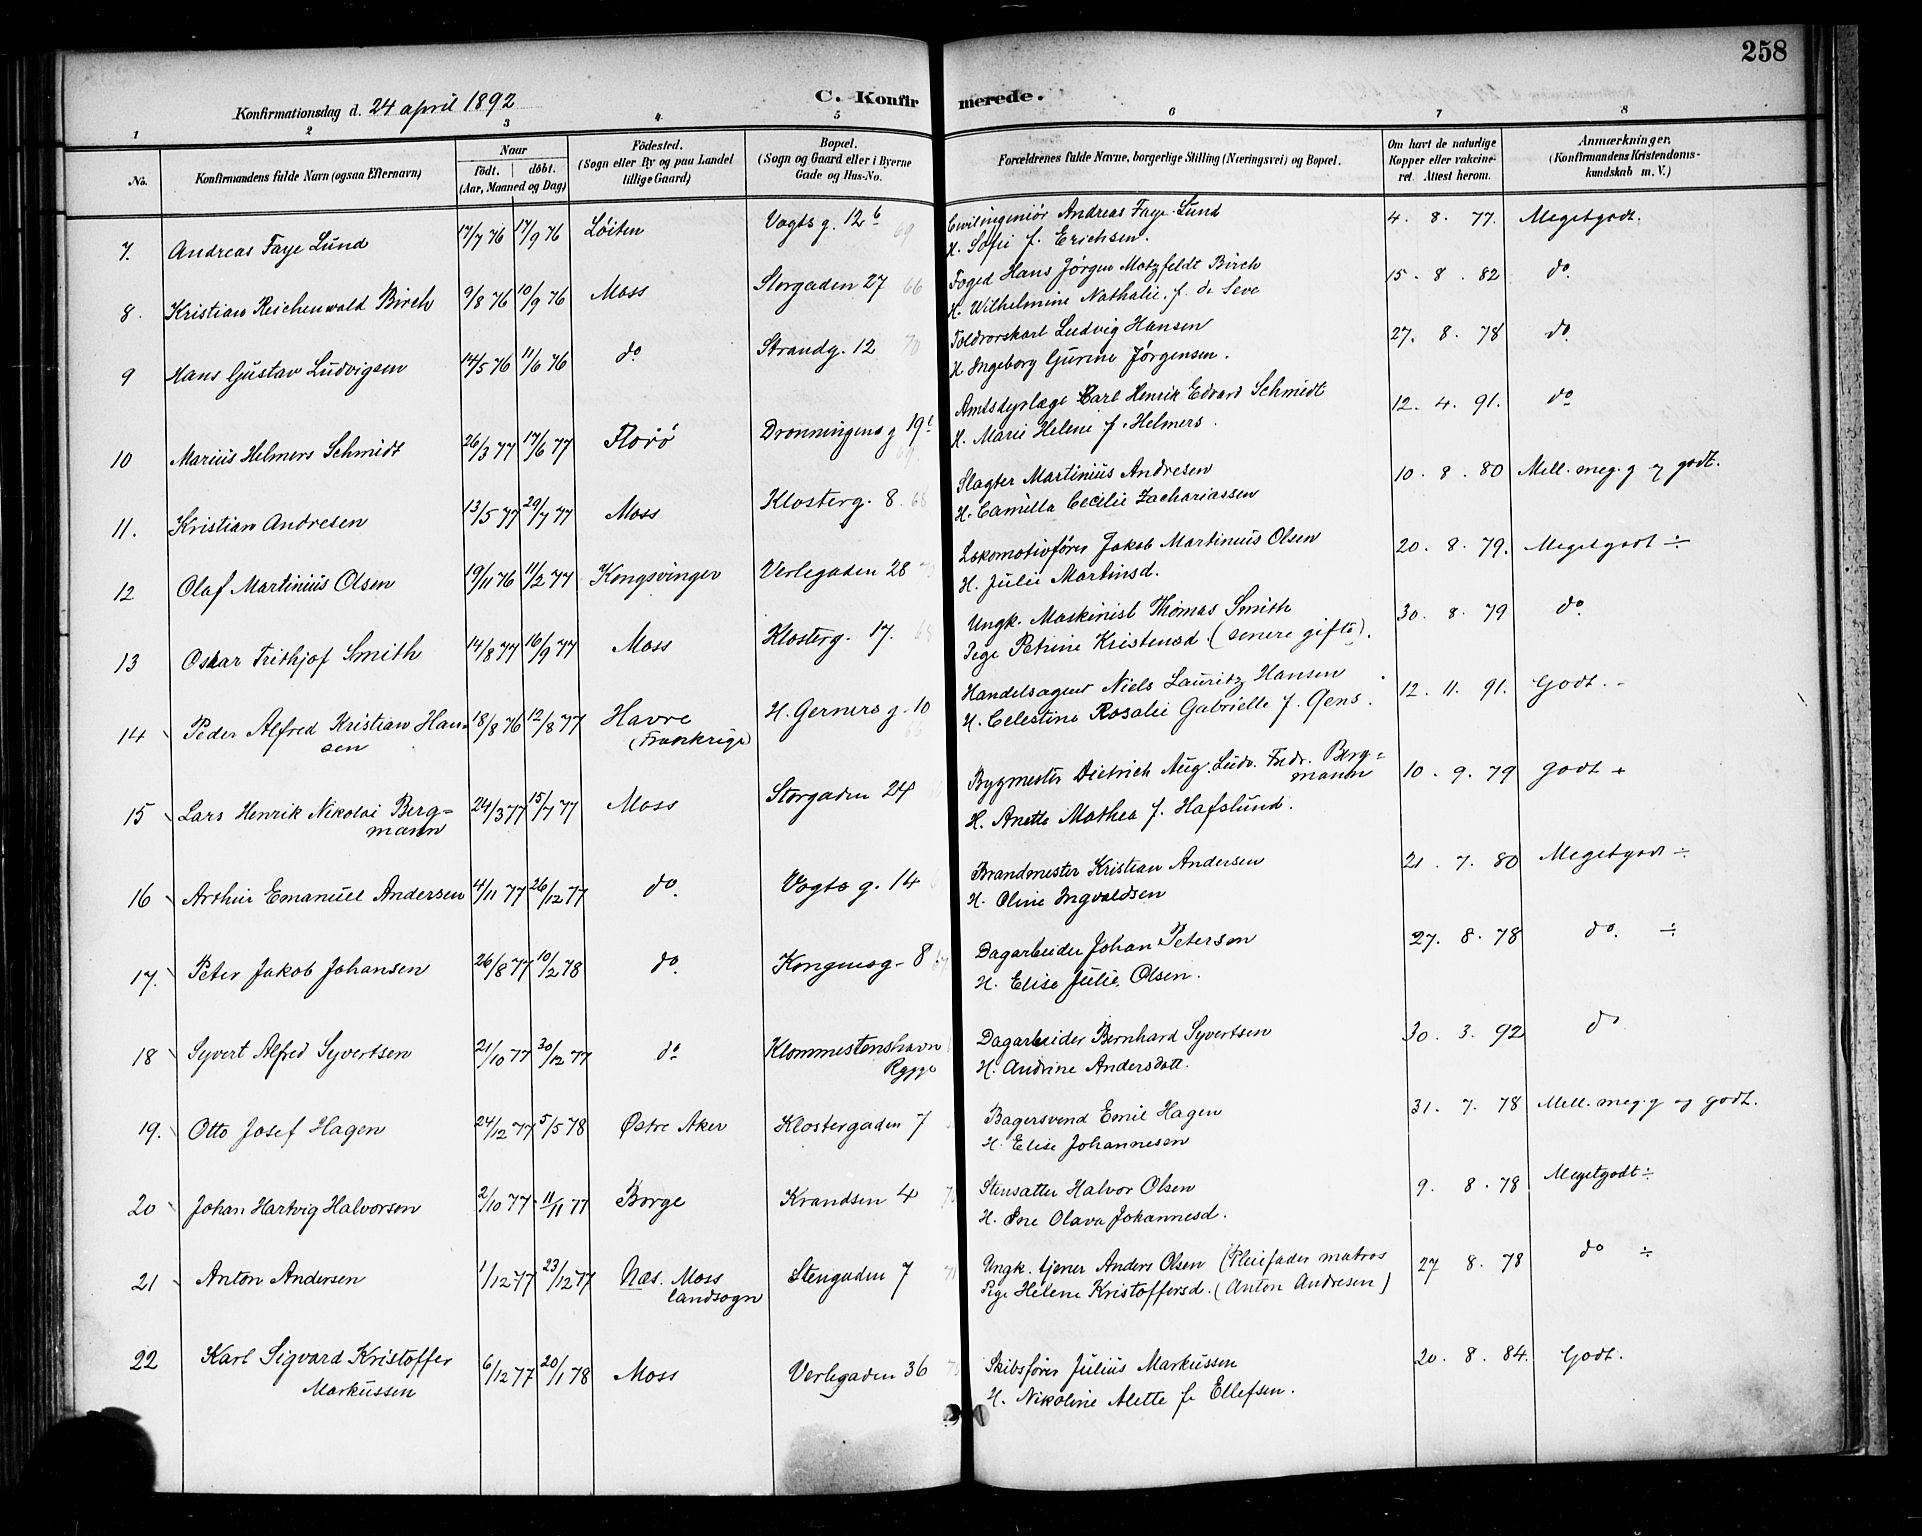 258
Konfirmationsdag d. 24 april 1892
C. Konfirmerede.
1 2 3 4 5 6 7 8
No.
Konfirmandens fulde Navn (ogsaa Efternavn)
Naar
født. døbt.
(Aar, Maaned og Dag)
Fødested.
(Sogn eller By og paa Landet
tillige Gaard)
Bopæl.
(Sogn og Gaard eller i Byerne
Gade og Hus-No.
Forældrenes fulde Navne, borgerlige Stilling (Næringsvei) og Bopæl.
Om havt de naturlige
Kopper eller vakcine-
ret. Attest herom.
Anmærkninger,
(Konfirmandens Kristendoms-
kundskab m. V.)
7. Andreas Faye Lund 17/7 76 17/9 76 Løiten Vogts g. 12 b 69 Civilingeniør Andreas Faye-Lund 4. 8. 77. Megetgodt.
H. Sofie f. Erichsen.
8. Kristian Reichenwald Birch 9/8 76 10/9 76 Moss Storgaden 27 66 Foged Hans Jørgen Motzfeldt Birch 15. 8. 82 do.
H. Wilhelmine Nathalie f. de Seve
9 Hans Gustav Ludvigsen 14/5 76 11/6 76 do Strandg. 12 70 Toldrorskarl Ludvig Hansen 27. 8. 78 do.
H Ingeborg Gurine Jørgensen.
10 Marius Helmers Schmidt 26/3 77 17/6 77 Florø Dronningens g 19 Amtsdyrlæge Carl Henrik Edvard Schmidt 12. 4. 91. do
H. Marie Helene f. Helmers.
11. Kristian Andresen 13/5 77 29/7 77 Moss Klosterg. 8. 68 Slagter Martinius Andresen 10. 8. 80 Mell. meg. g og godt.
H. Camilla Cecilie Zachariassen
12 Olaf Martinius Olsen 19/11 76 11/2 77 Kongsvinger Verlegaden 28 Lokomotivfører Jakob Martinius Olsen 20. 8. 79. Megetgodt ÷
H. Julie Martinsd.
13 Oskar Frithjof Smith 14/8 77 16/9 77 Moss Klosterg. 17. 68 Ungk. Maskinist Thomas Smith 30. 8. 79 do.
Pige Petrine Kristensd (senere gifte).
14 Peder Alfred Kristian Han- 18/8 76 12/8 77 Havre H. Gerners g. 10 Handelsagent Niels Lauritz Hansen 12. 11. 91. Godt. -
sen (Frankrige) H. Celestine Rosalie Gabrielle f. Gens.
15 Lars Henrik Nikolai Berg= 24/3 77 15/7 77 Moss Storgaden 24 Bygmester Dietrich Aug. Ludv. Fredr. Berg= 10. 9. 79 Godt +
mann mann
H. Anette Mathea f. Hafslund.
16 Arthur Emanuel Andersen 4/11 77 26/12 77 do. Vogts g. 14 Brandmester Kristian Andersen 21. 7. 80 Megetgodt ÷
H. Oline Ingvaldsen
17. Peter Jakob Johansen 26/8 77 10/2 78 do. Kongensg. 8 67 Dagarbeider Johan Petersen 27. 8. 78 do. ÷
H. Elise Julie Olsen.
18 Syvert Alfred Syvertsen 21/10 77 30/12 77 do Klommestenshavn Dagarbeider Bernhard Syvertsen 30. 3. 92 do
Rygge H. Andrine Andersdatt.
19. Otto Josef Hagen 24/12 77 5/5 78 Østre Aker Klostergaden 7 Bagersvend Emil Hagen 31. 7. 78 Mell. meg. g og godt.
H. Elise Johannesen
20 Johan Hartvig Halvorsen 2/10 77 11/11 77 Borge Krandsen 4 Stensætter Halvor Olsen 9. 8. 78 Megetgodt ÷
H. Ine Olava Johannesd.
21 Anton Andersen 1/12 77 23/12 77 Næs. Moss Stengaden 7 Ungk. tjener Anders Olsen (Pleiefader matros 27 8. 78 do ÷
landsogn Pige Helene Kristoffersd. (Anton Andresen)
22 Karl Sigvard Kristoffer 6/12 77 20/1 78 Moss Verlegaden 36 Skibsfører Julius Markussen 20. 8. 84. Godt.
Markussen H. Nikoline Alette f. Ellefsen.